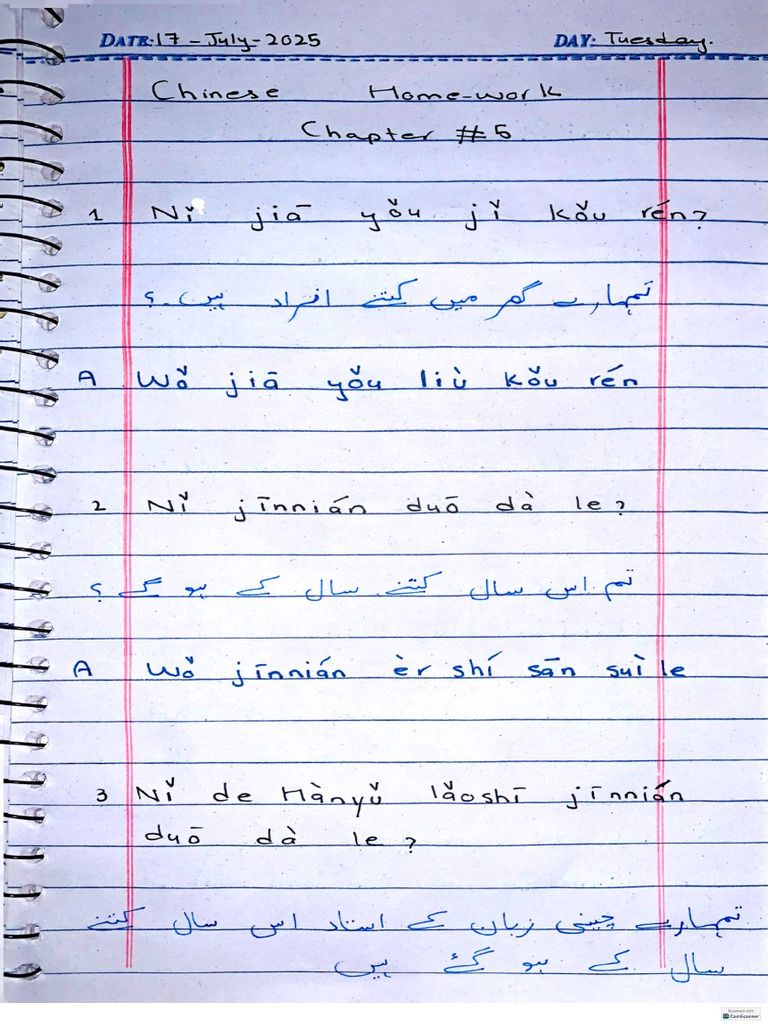 DATE: 17 - July - 2025 DAY: Tuesday.
Chinese Home-work
Chapter #5
1 Nǐ jiā yǒu jǐ kǒu rén?
تمہارے گھر میں کتنے افراد ہیں.؟
A Wǒ jiā yǒu liù kǒu rén
2 Nǐ jīnnián duō dà le?
تم اس سال کتنے سال کے ہو گے ؟
A Wǒ jīnnián èr shí sān suì le
3 Nǐ de Hànyǔ lǎoshī jīnnián
duō dà le?
تمہارے چینی زبان کے استاد اس سال کتنے
سال کے ہو گئے ہیں
Scanned with
CS CamScanner